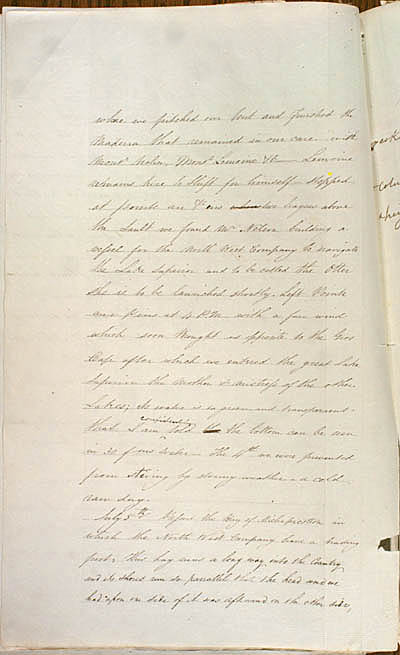 where we pitched our tent and finished the
Madeira that remained in our case with
Monsr Nolin, Monsr Lemoine &c — Lemoine
remains here to shift for himself. Stopped
at pointe aux Pins two leagues above
the Sault we found Mr Nelson building a
vessel for the North West Company to navigate
the Lake Superior and to be called the Otter
She is to be launched shortly. Left Pointe
aux Pins at 4 P.M. with a fair wind
which soon brought us opposite to the Gros
Cape after which we entered the great Lake
Superior the Mother & Mistress of the other
Lakes; its water is so pure and transparent
that I am credibly told the bottom can be seen
in water — The 4th we were prevented
from stirring by stormy weather — a cold
raw day.
July 5th Passed the Bay of Michipicoton in
which the North West Company have a trading
post, this bay runs a long way into the Country
and its shores run so parrallel that the head and we
had upon one side of it was aftward on the other side,